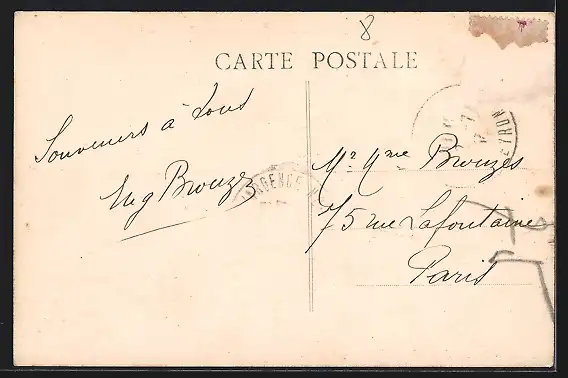 8
CARTE POSTALE
Souvenirs à tous
Eug Brouzes
Mr Mme Brouzes
75 rue Lafontaine
Paris